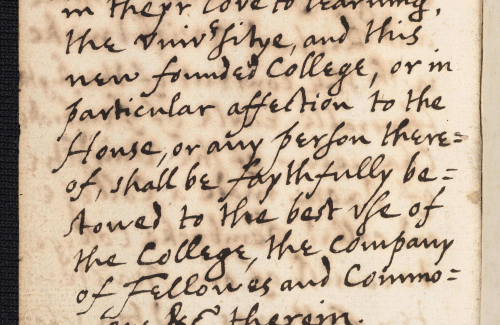 in theyr love to learning,
the Univ^rsitye, and this
new founded College, or in
particular affection to the
House, or any person there=
of, shall be faythfully be=
stowed to the best vse of
the College, the Company
of Fellowes and Commo=
&c therein.